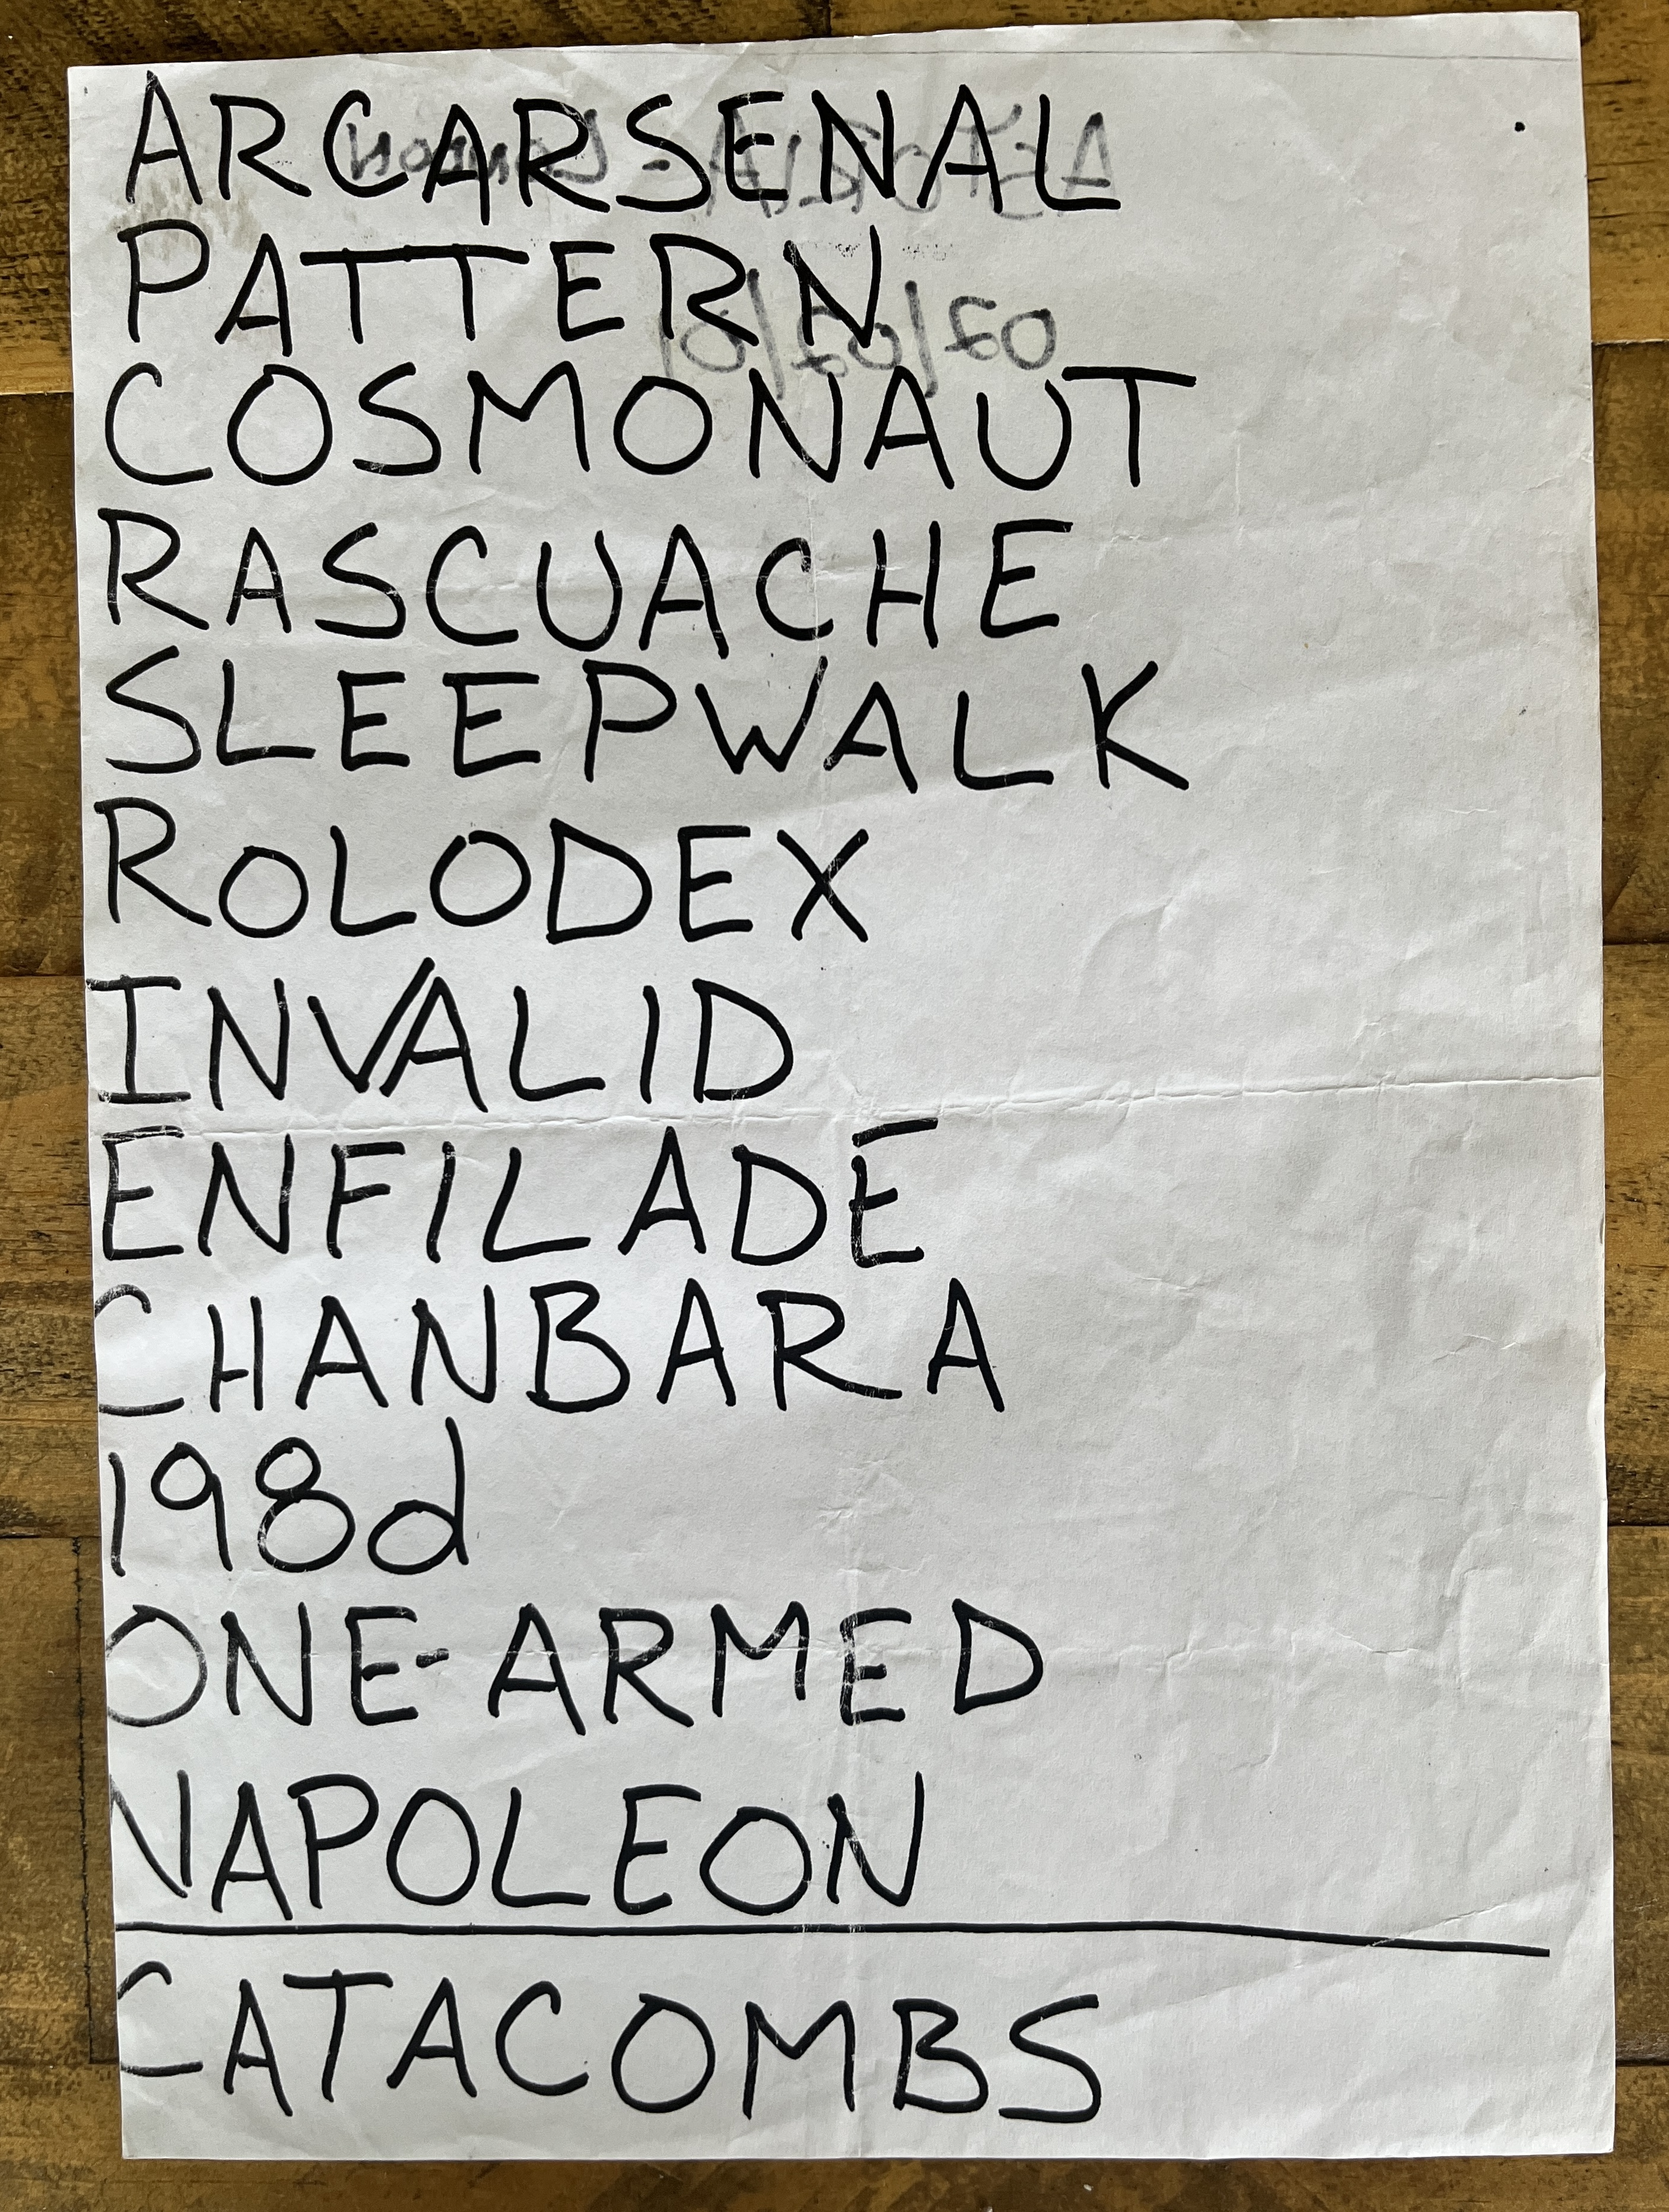 ARCARSENAL
PATTERN
COSMONAUT
RASCUACHE
SLEEPWALK
ROLODEX
INVALID
ENFILADE
CHANBARA
198d
ONE-ARMED
NAPOLEON
CATACOMBS